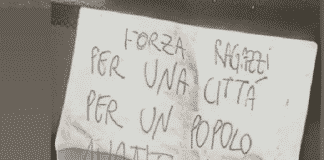 FORZA RAGAZZI
PER UNA CITTÁ
PER UN POPOLO